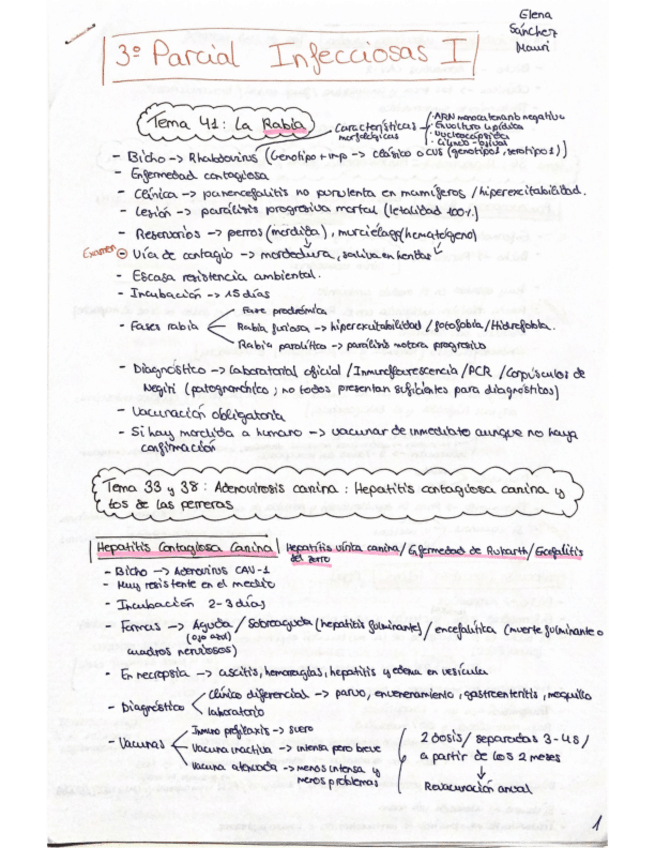 Elena
Sánchez
Mauri
3º Parcial Infecciosas I
Tema 41: La Rabia
Características morfológicas
· ARN monocatenario negativo
· Envoltura lipídica
· Nucleocápsida
- Bicho -> Rhabdovirus (Genotipo + imp -> clásico o CUS (genotipo 1, serotipo 1))
- Enfermedad contagiosa
- Clínica -> panencefalitis no purulenta en mamíferos / hiperexcitabilidad.
- Lesión -> parálisis progresiva mortal (letalidad 100%)
- Reservorios -> perros (mordida), murciélago (hematógeno)
Examen
Vía de contagio -> mordedura, saliva en heridas
- Escasa resistencia ambiental.
- Incubación -> 15 días
- Fases rabia
Fase prodrómica
Rabia furiosa -> hiperexcitabilidad / fotofobia / Hidrofobia.
Rabia paralítica -> parálisis motora progresiva
- Diagnóstico -> Laboratorial oficial / Inmunofluorescencia / PCR / Corpúsculos de
Negri (patognomónico; no todos presentan suficientes para diagnósticos)
- Vacunación obligatoria
- Si hay mordida a humano -> vacunar de inmediato aunque no haya
confirmación
Tema 33 y 38: Adenovirosis canina: Hepatitis contagiosa canina y
tos de las perreras
Hepatitis Contagiosa Canina
Hepatitis vírica canina / Enfermedad de Rubarth / Encefalitis
del zorro
- Bicho -> Adenovirus CAV-1
- Muy resistente en el medio
- Incubación 2-3 días
- Formas -> Aguda / Sobreaguda (hepatitis fulminante) / encefalítica (muerte fulminante o
(ojo azul)
cuadros nerviosos)
- En necropsia -> ascitis, hemorragias, hepatitis y edema en vesícula
- Diagnóstico
Clínico diferencial -> parvo, envenenamiento, gastroenteritis, moquillo
laboratorio
- Vacunas
Inmuno profilaxis -> suero
Vacuna inactiva -> intensa pero breve
Vacuna atenuada -> menos intensa y
menos problemas
2 dosis / separadas 3-4s /
a partir de los 2 meses
↓
Revacunación anual
1